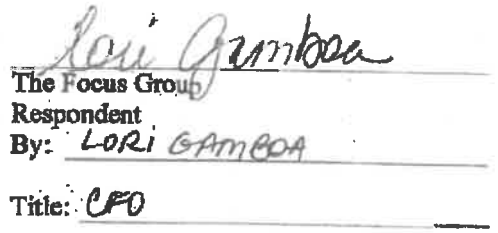 Lori Gamboa
The Focus Group
Respondent
By: LORi GAMBOA
Title: CFO